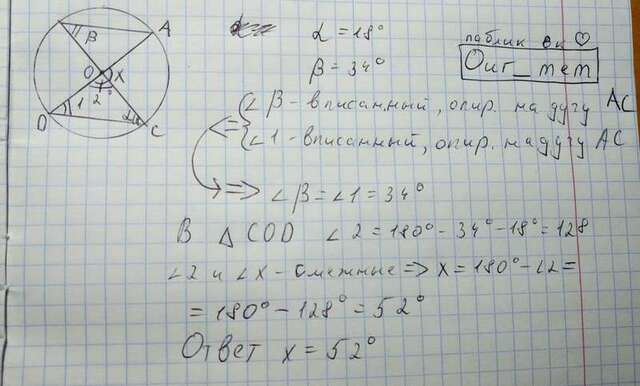 A
β
O
X
2
1
α
D
C
α = 18°
β = 34°
паблик вк ♡
Оиг_тет
∠β - вписанный, опир. на дугу AC
∠1 - вписанный, опир. на дугу AC
⇒ ∠β = ∠1 = 34°
В △ COD ∠2 = 180° - 34° - 18° = 128
∠2 и ∠X - смежные ⇒ X = 180° - ∠2 =
= 180° - 128° = 52°
Ответ x = 52°